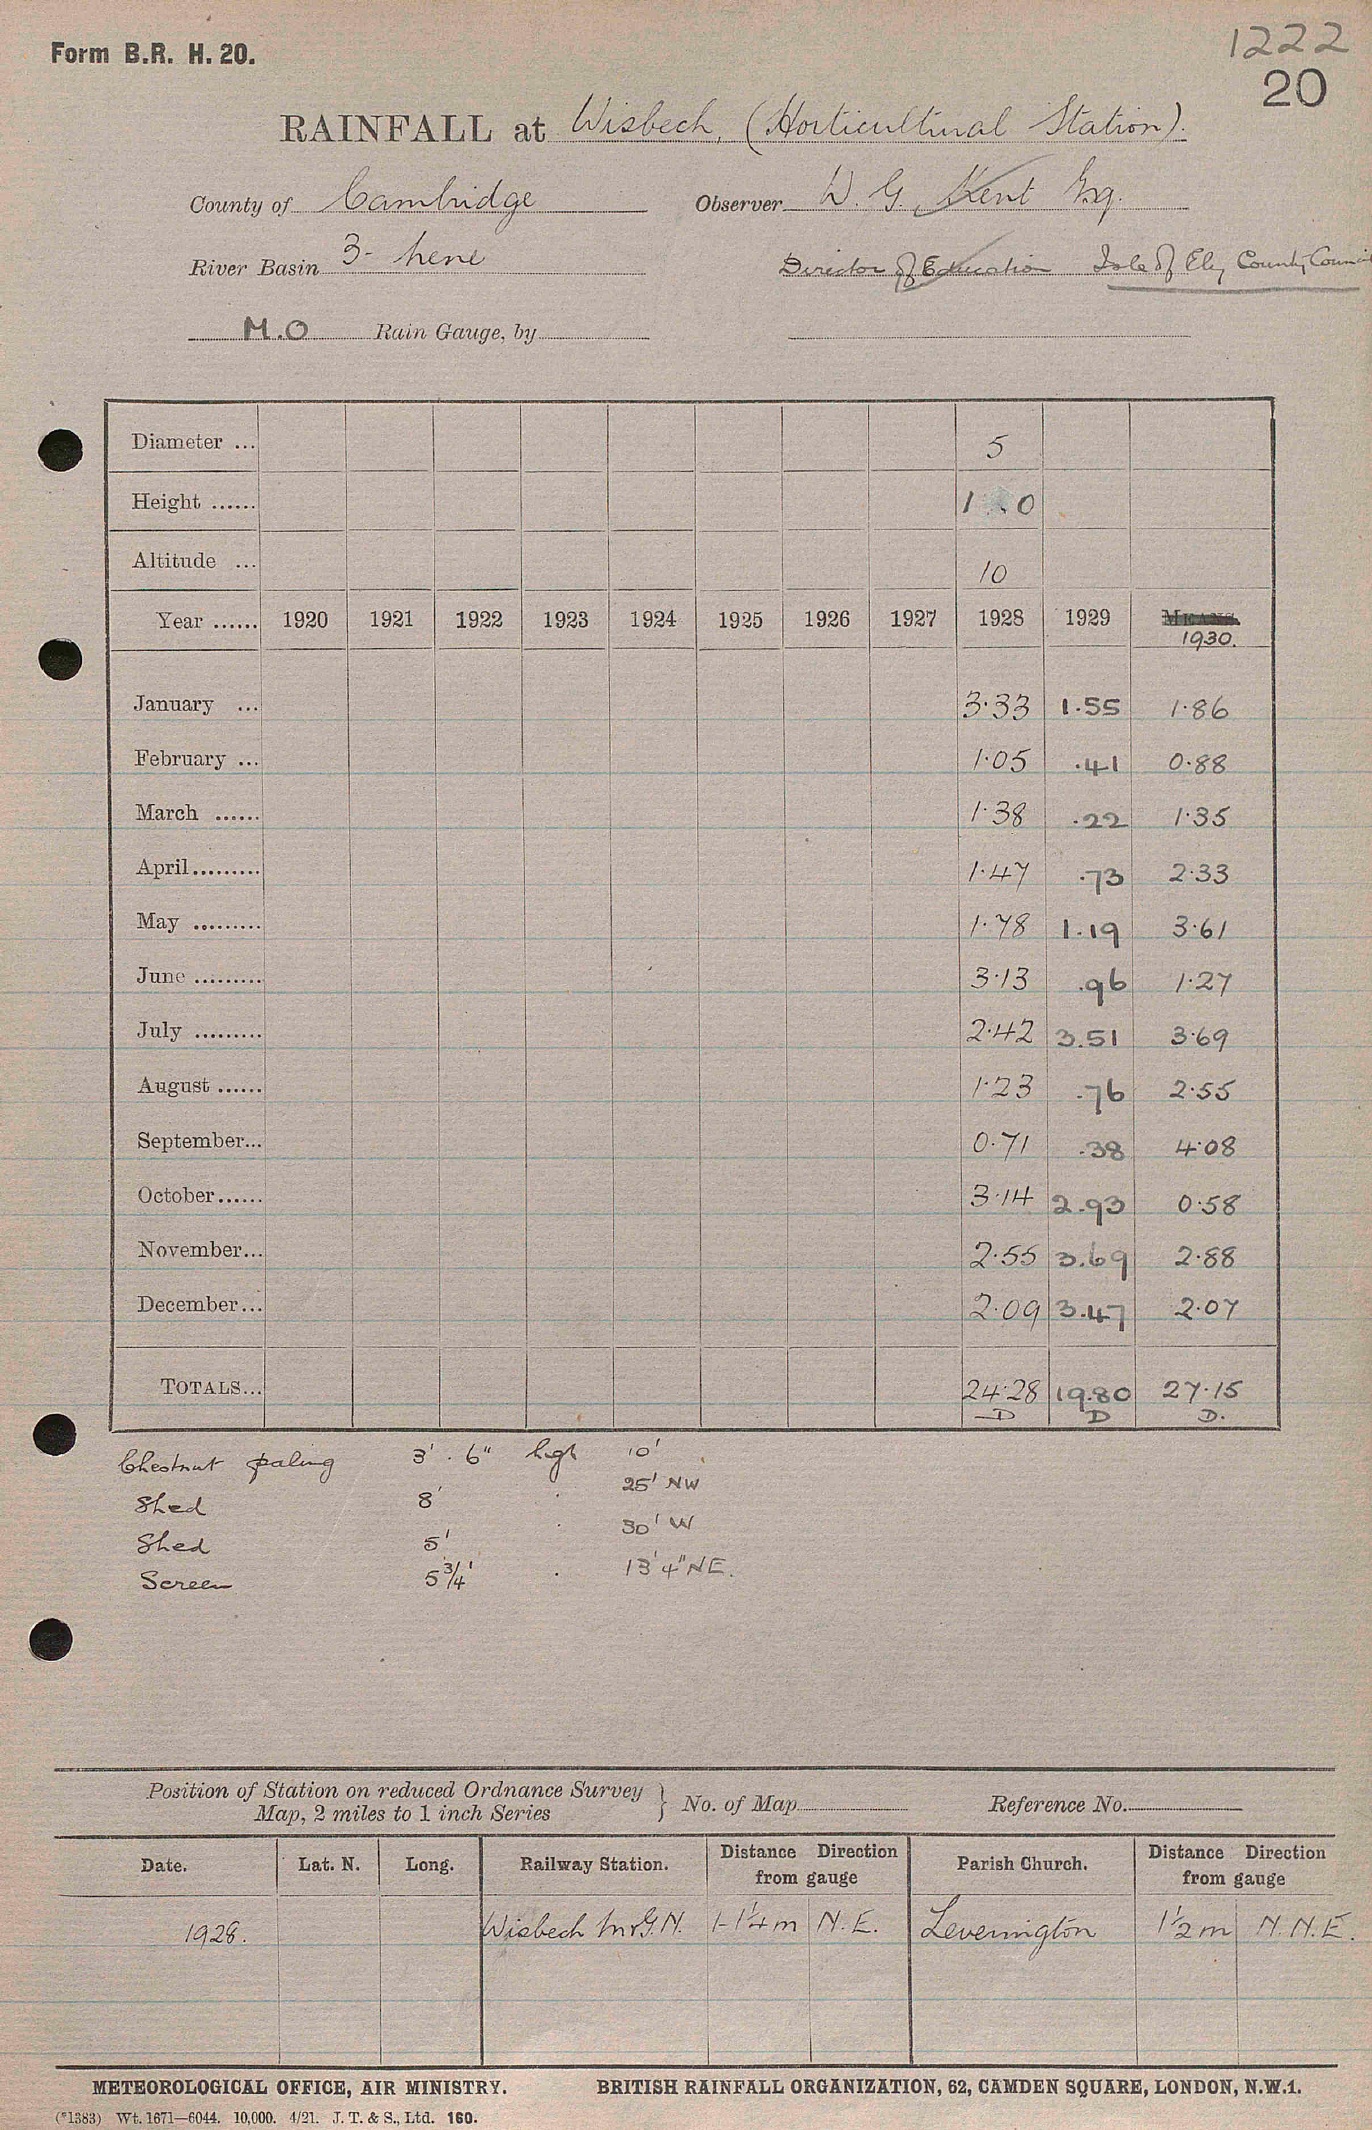 Form B.R. H. 20.
1222
20
RAINFALL at Wisbech, (Horticultural Station).
County of Cambridge Observer W. G. Kent Esq.
River Basin 3- Nene Director of Education Isle of Ely County Council
M.O Rain Gauge, by
Diameter ... 5
Height ...... 1 0
Altitude ... 10
Year ...... 1920 1921 1922 1923 1924 1925 1926 1927 1928 1929 MEANS.
1930.
January ... 3.33 1.55 1.86
February ... 1.05 .41 0.88
March ...... 1.38 .22 1.35
April......... 1.47 .73 2.33
May ......... 1.78 1.19 3.61
June ......... 3.13 .96 1.27
July ......... 2.42 3.51 3.69
August ...... 1.23 .76 2.55
September... 0.71 .38 4.08
October...... 3.14 2.93 0.58
November... 2.55 3.69 2.88
December... 2.09 3.47 2.07
TOTALS... 24.28 19.80 27.15
D D D.
Chestnut paling 3' . 6" high 10'
Shed 8' . 25' NW
Shed 5' . 30' W
Screen 5 3/4' . 13' 4" NE.
Position of Station on reduced Ordnance Survey
Map, 2 miles to 1 inch Series } No. of Map Reference No.
Date. Lat. N. Long. Railway Station. Distance Direction from gauge Parish Church. Distance Direction from gauge
1928. Wisbech M&G.N. 1-1/4 m N.E. Leverington 1 1/2 m N.N.E.
METEOROLOGICAL OFFICE, AIR MINISTRY. BRITISH RAINFALL ORGANIZATION, 62, CAMDEN SQUARE, LONDON, N.W.1.
(*1383) Wt. 1671—6044. 10,000. 4/21. J. T. & S., Ltd. 160.